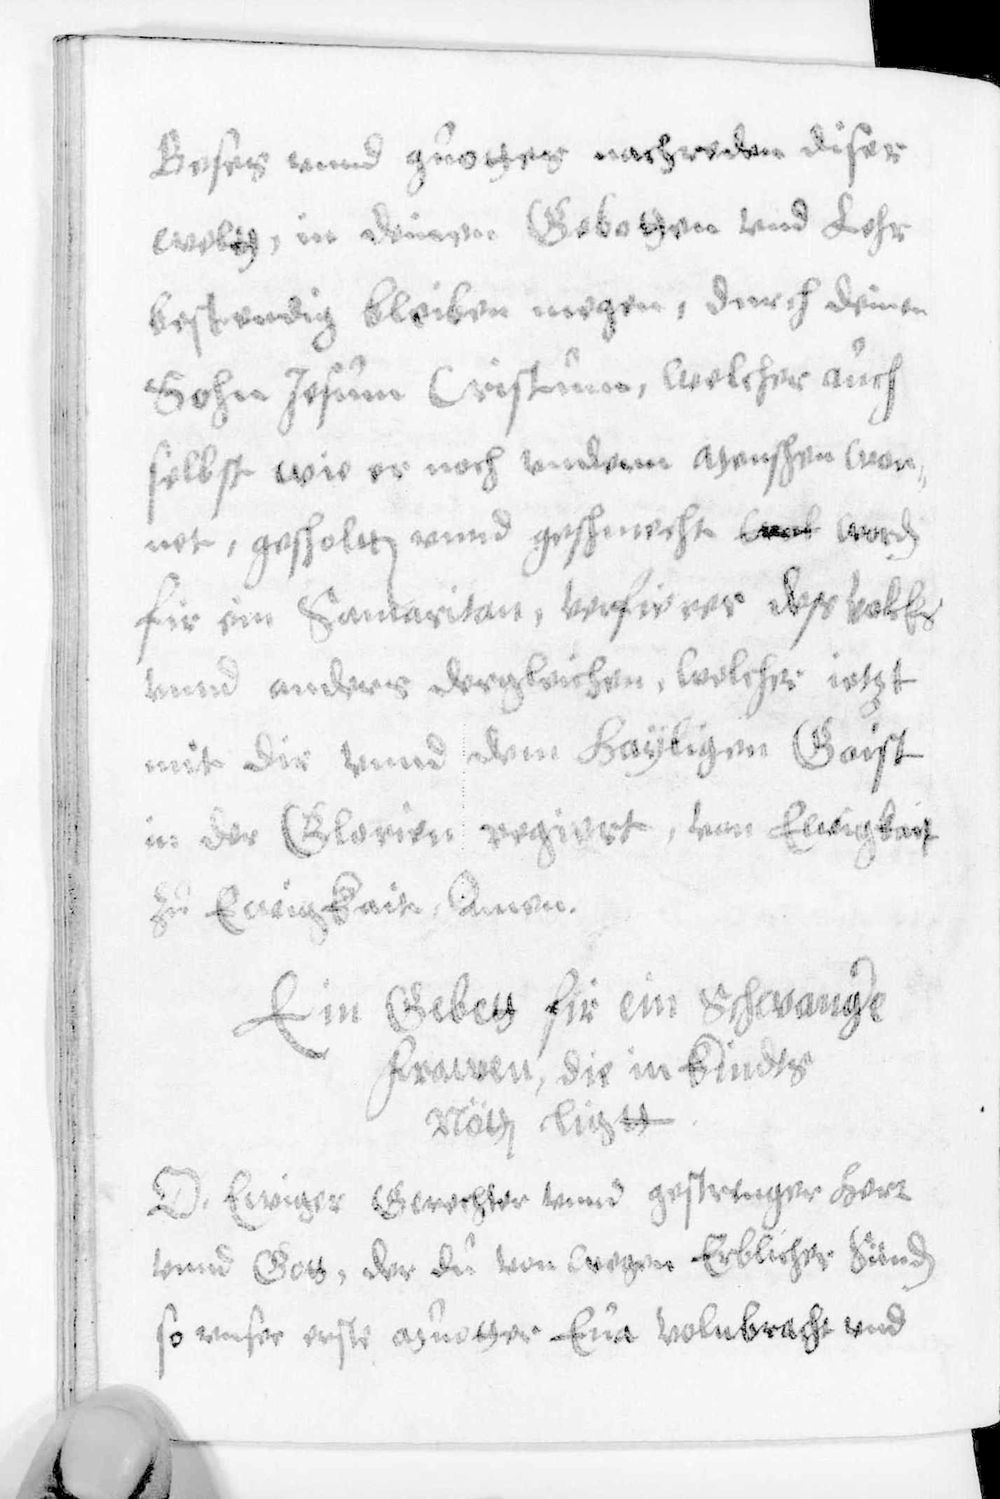 Beses vnnd guottes nachreden diser
weltt, in deinen Gebotten vnd Lehr
bestendig bleiben megen, durch deinen
Sohn Jesum Cristum, welcher auch
selbst wie er noch vnderm Menshen won,,
net, gesholtt vnnd geshmecht word
fir ein Samaritan, verfierer des volkhs
vnnd anders dergleichen, welcher ietzt
mit dir vnnd dem Hayligen Gaist
in der Glorien regiert, von Ewigkait
zu Ewigkait, Amen.
Ein Gebett fir ein Schwang'e
frawen, die in kindts
Nött ligtt
O. Ewiger Gerechter vnnd gestrenger Herr
vnnd Gott, der du von wegen Erblicher Sünd
so vnser erste Muotter Eua volnbracht vnd